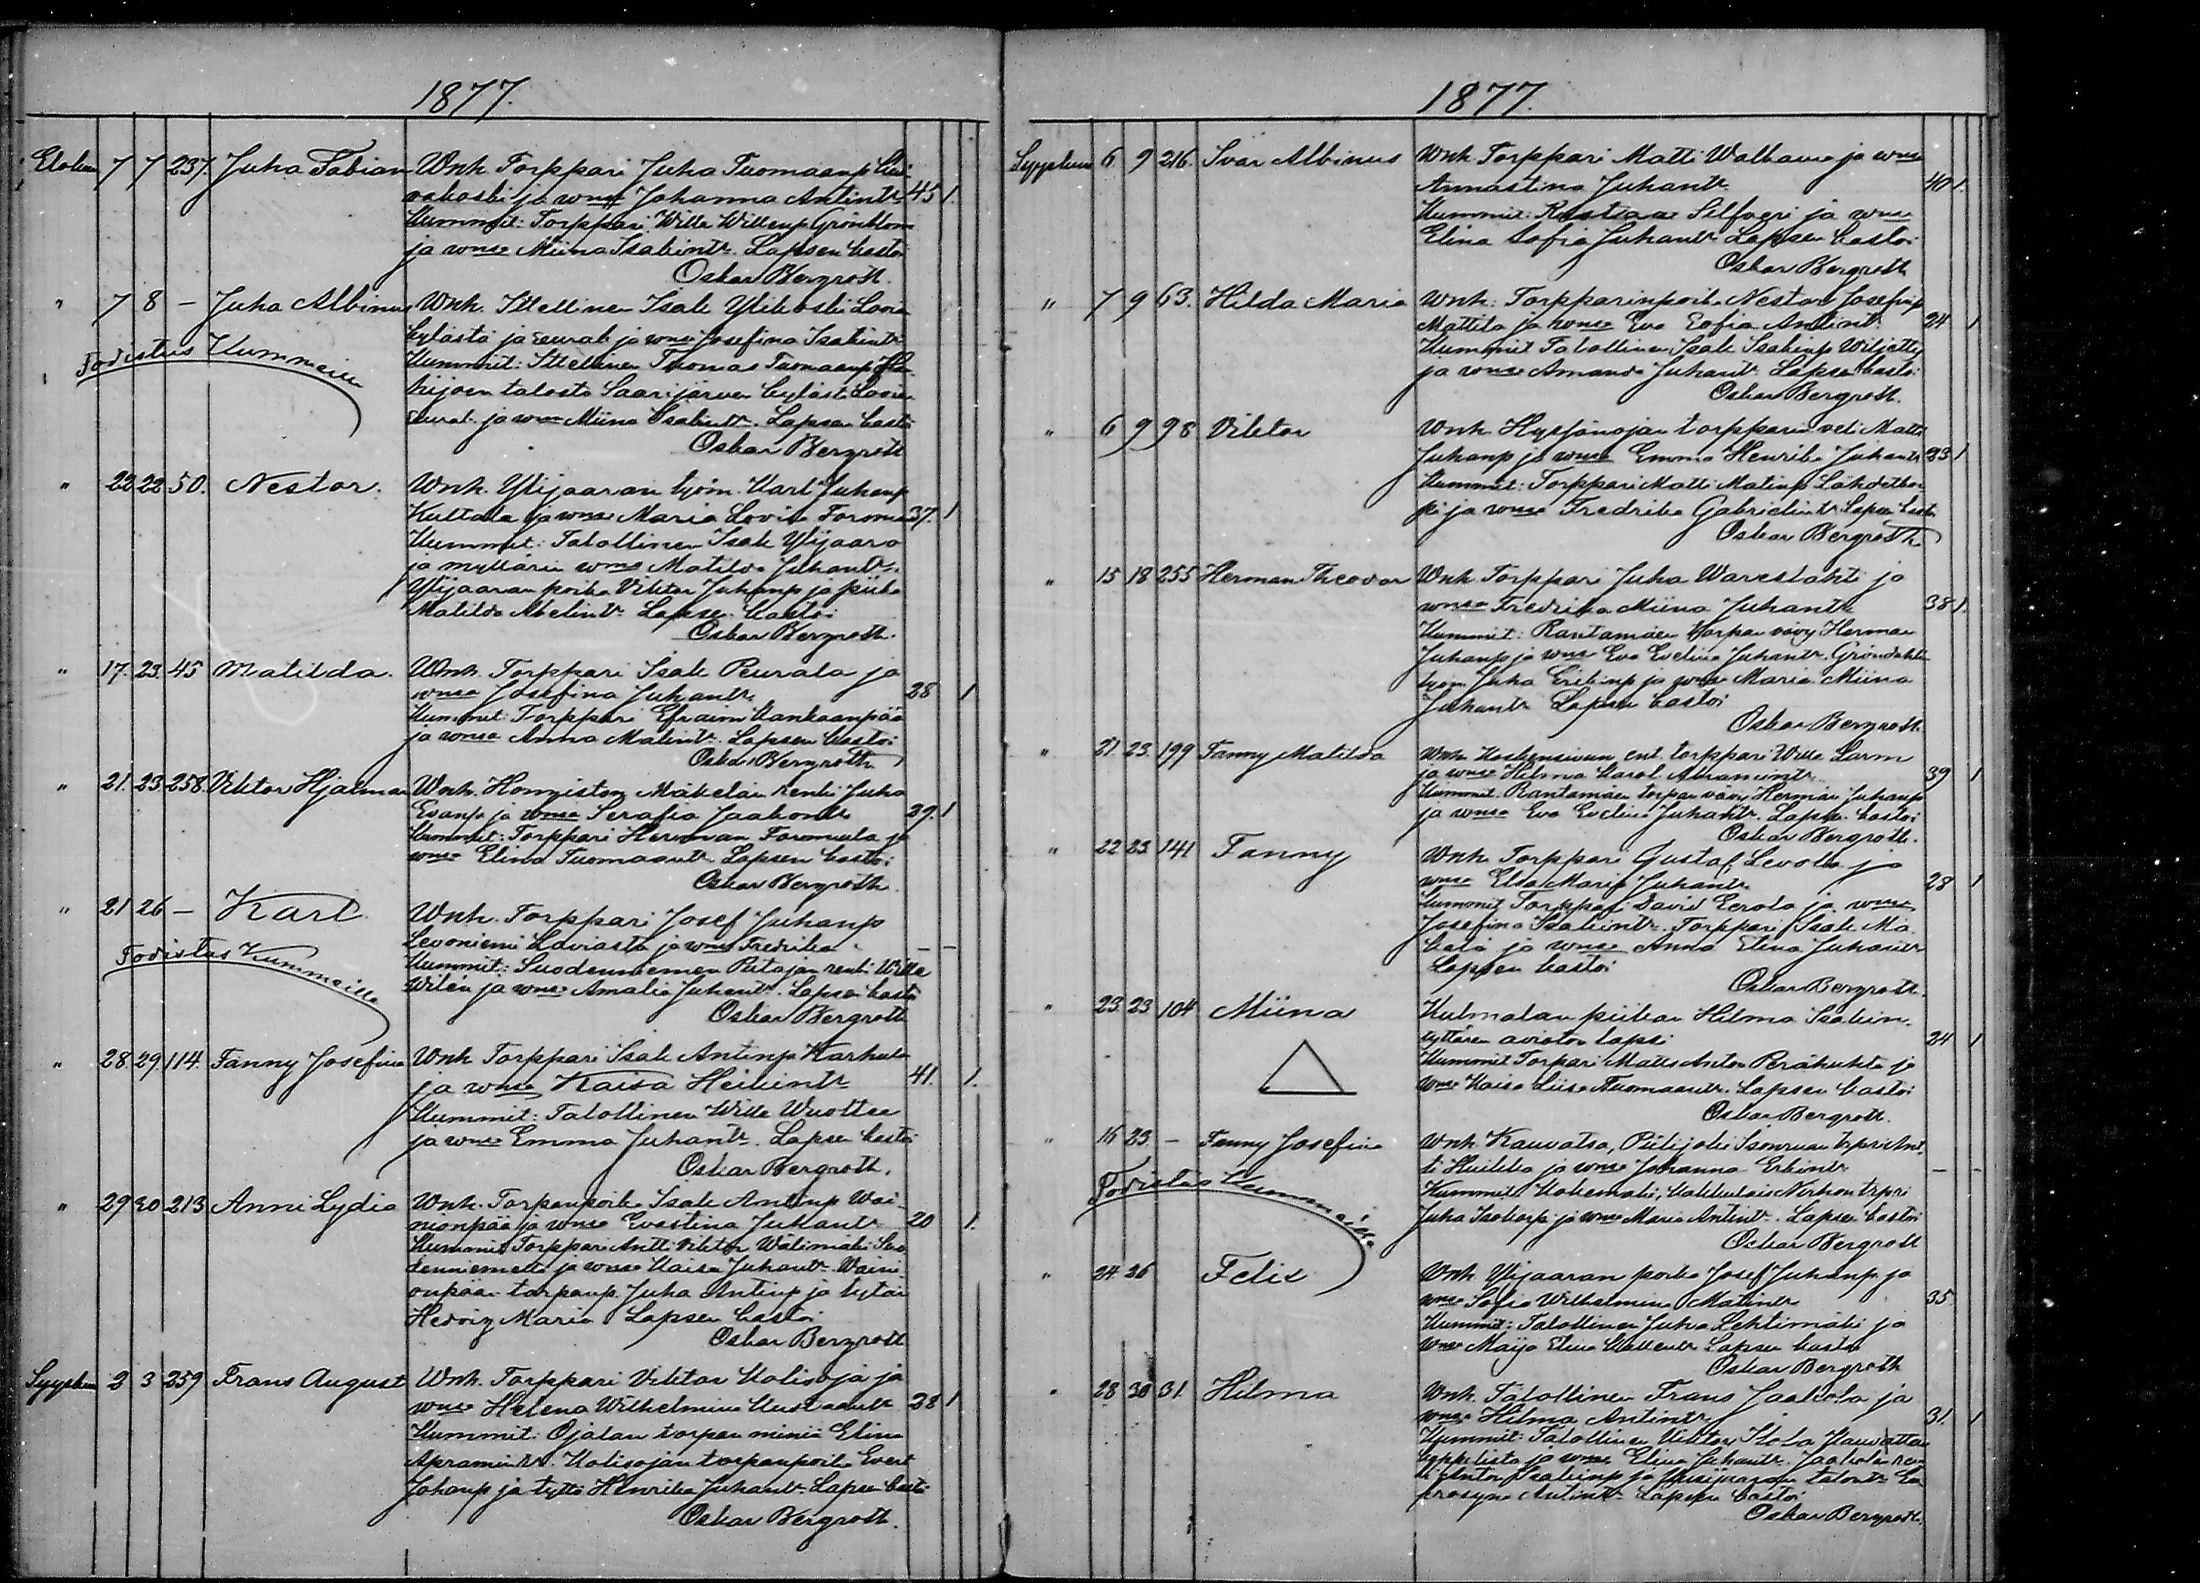 1877.
Elokuu 7 7 237. Juha Fabian Wnh. Torppari Juha Tuomaanp
vakoski ja wmsa Johanna Antintr. 45 1.
Kummit: Torppari Wille Willenp Grönblom
ja wmsa Miina Isakintr. Lapsen kastoi
Oskar Bergroth.
" 7 8 – Juha Albinus Wnh. Itsellinen Isak Ylikoski Lavia
kylästä ja seurak ja wmsa Josefina Isakintr
Todistus Kummeille
Kummit: Itsellinen Thomas Tuomaanp
kijoen talosta Saarijärven kylästä Lavian
seurak. ja wmsa Miina Isakintr. Lapsen kastoi
Oskar Bergroth
" 22 22 50. Nestor. Wnh. Ylijaaran työm. Karl Juhanp
Kultala ja wmsa Maria Lovisa 37. 1
Kummit: Talollinen Isak Ylijaara
ja myllärin wmsa Matilda Juhantr.
Ylijaaran poika Viktor Juhanp ja piika
Matilda Abelintr. Lapsen kastoi
Oskar Bergroth.
" 17. 23. 45 Matilda. Wnh. Torppari Isak Peurala ja
wmsa Josefina Juhantr. 28 1
Kummit: Torppari Efraim Kankaanpää
ja wmsa Anna Matintr. Lapsen kastoi
Oskar Bergroth
" 21. 23. 258. Viktor Hjalmar Wnh. Hongiston Mäkelän renki Juha
Evanp ja wmsa Serafia Jaakontr 29. 1
Kummit: Torppari Herman ja
wmsa Elina Tuomaantr. Lapsen kastoi
Oskar Bergroth.
" 21 26 – Karl. Wnh. Torppari Josef Juhanp
Levoniemi Laviasta ja wmsa Fredrika – –
Todistus Kummeille
Kummit: Suodenniemen renki Wille
Wilén ja wmsa Amalia Juhantr. Lapsen kastoi
Oskar Bergroth
" 28. 29. 114. Fanny Josefina Wnh Torppari Isak Antinp Karhula
ja wmsa Kaisa Heikintr 41. 1.
Kummit: Talollinen Wille
ja wmsa Emma Juhantr. Lapsen kastoi
Oskar Bergroth.
" 29 30 213 Anni Lydia Wnh. Torpanpoika Isak Antinp Wäi-
nionpää ja wmsa Evastina Juhantr 20 1.
Kummit Torppari Antti Viktor Wälimäki Suo
denniemeltä ja wmsa Kaisa Juhantr. Wäini
onpään torpanp. Juha Antinp ja tytär
Hedvig Maria Lapsen kastoi
Oskar Bergroth
Syyskuu 2 3 259 Frans August Wnh. Torppari Viktor Kolisoja ja
wmsa Helena Wilhelmina Kustaantr 28 1
Kummit: Ojalan torpan miniä Elina
Apramintr. Kolisojan torpanpoika Evert
Johanp ja tyttö Henrika Juhantr. Lapsen kastoi
Oskar Bergroth.
1877.
Syyskuu 6 9 216. Ivar Albinus Wnh Torppari Matti Walkama ja wmsa
Annastina Juhantr. 40 1.
Kummit: Kustaa Silfveri ja wmsa
Elina Sofia Juhantr Lapsen kastoi
Oskar Bergroth
" 7 9 63. Hilda Maria Wnh: Torpparinpoika Nestor Josefinp
Mattila ja wmsa Eva Sofia Antintr. 24 1
Kummit Talollinen Isak Isakinp Wiljetty
ja wmsa Amanda Juhantr. Lapsen kastoi
Oskar Bergroth.
" 6 9 98 Viktor Wnh torpparin veli Matti
Juhanp ja wmsa Emma Henrika Juhantr 23 1
Kummit: Torppari Matti Matinp
ja wmsa Fredrika Gabrielintr Lapsen kastoi
Oskar Bergroth
" 15 18 255 Herman Theodor Wnh Torppari Juha Wareslahti ja
wmsa Fredrika Miina Juhantr 38 1.
Kummit: Rantamäen torpan vävy Herman
Juhanp ja wmsa Eva Evelina Juhantr. Gröndahlin
työm Juha Erikinp ja wmsa Maria Miina
Juhantr Lapsen kastoi
Oskar Bergroth.
" 21. 23. 199 Fanny Matilda Wnh ent. torppari Wille Larm
ja wmsa Hilma Karol. Abramintr. 39 1
Kummit. Rantamäen torpan vävy Herman Juhanp
ja wmsa Eva Evelina Juhantr. Lapsen kastoi
Oskar Bergroth.
" 22 23 141 Fanny Wnh Torppari Gustaf Levola ja
wmsa Elsa Maria Juhantr 28 1
Kummit Torppari David Eerola ja wmsa
Josefina Isakintr. Torppari Isak Mä
kelä ja wmsa Anna Elina Juhantr
Lapsen kastoi
Oskar Bergroth.
" 23. 23 104 Miina Kulmalan piikan Hilma Isakin
tyttären avioton lapsi 24 1
Kummit Torppari Matts Anton Peräkulta ja
wmsa Kaisa Liisa Tuomaantr. Lapsen kastoi
Oskar Bergroth.
" 16 23 – Fanny Josefina Wnh Kauvatsa, Piilijoki trpri Ant
ti Huikka ja wmsa Johanna Erkintr. – –
Todistus Kummeille
Kummit: Kokemäki, trpri
Juha Isakinp ja wmsa Maria Antintr. Lapsen kastoi
Oskar Bergroth
" 24 26 Felix Wnh Ylijaaran poika Josef Juhanp ja
wmsa Sofia Wilhelmina Matintr. 35
Kummit: Talollinen Juha Lehtimäki ja
wmsa Maija Elina Kallentr Lapsen kastoi
Oskar Bergroth
" 28 30 31. Hilma Wnh. Talollinen Frans Jaakola ja
wmsa Hilma Antintr. 31. 1
Kummit: Talollinen Viktor Kauvatsan
kappelista ja wmsa Elina Juhantr. Jaakolan ren
ki Anton Isakinp ja talontr Eu
frosyne Antintr. Lapsen kastoi
Oskar Bergroth.